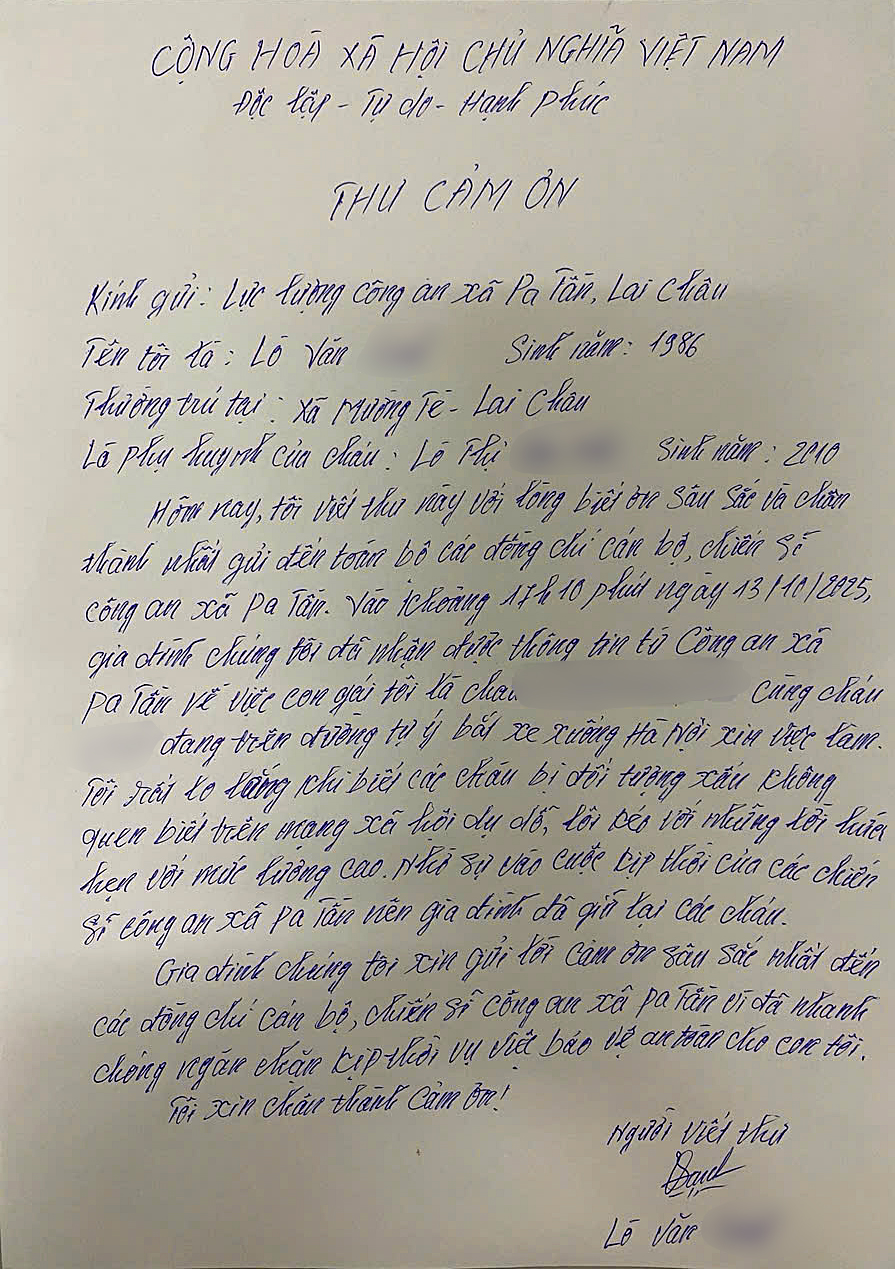 CỘNG HOÀ XÃ HỘI CHỦ NGHĨA VIỆT NAM
Độc lập - Tự do - Hạnh phúc
THƯ CẢM ƠN
Kính gửi: Lực lượng công an xã Pa Tần, Lai Châu
Tên tôi là: Lò Văn Sinh năm: 1986
Thường trú tại: xã Mường Tè - Lai Châu
Là phụ huynh của cháu: Lò Thị Sinh năm: 2010
Hôm nay, tôi viết thư này với lòng biết ơn sâu sắc và chân
thành nhất gửi đến toàn bộ các đồng chí cán bộ, chiến sĩ
công an xã Pa Tần. Vào khoảng 17h10 phút ngày 13/10/2025,
gia đình chúng tôi đã nhận được thông tin từ Công an xã
Pa Tần về việc con gái tôi là cháu cùng cháu
đang trên đường tự ý bắt xe xuống Hà Nội xin việc làm.
Tôi rất lo lắng khi biết các cháu bị đối tượng xấu không
quen biết trên mạng xã hội dụ dỗ, lôi kéo với những lời hứa
hẹn với mức lương cao. Nhờ sự vào cuộc kịp thời của các chiến
sĩ công an xã Pa Tần nên gia đình đã giữ lại các cháu.
Gia đình chúng tôi xin gửi lời cảm ơn sâu sắc nhất đến
các đồng chí cán bộ, chiến sĩ công an xã Pa Tần vì đã nhanh
chóng ngăn chặn kịp thời vụ việc bảo vệ an toàn cho con tôi.
Tôi xin chân thành cảm ơn!
Người viết thư
Lò Văn